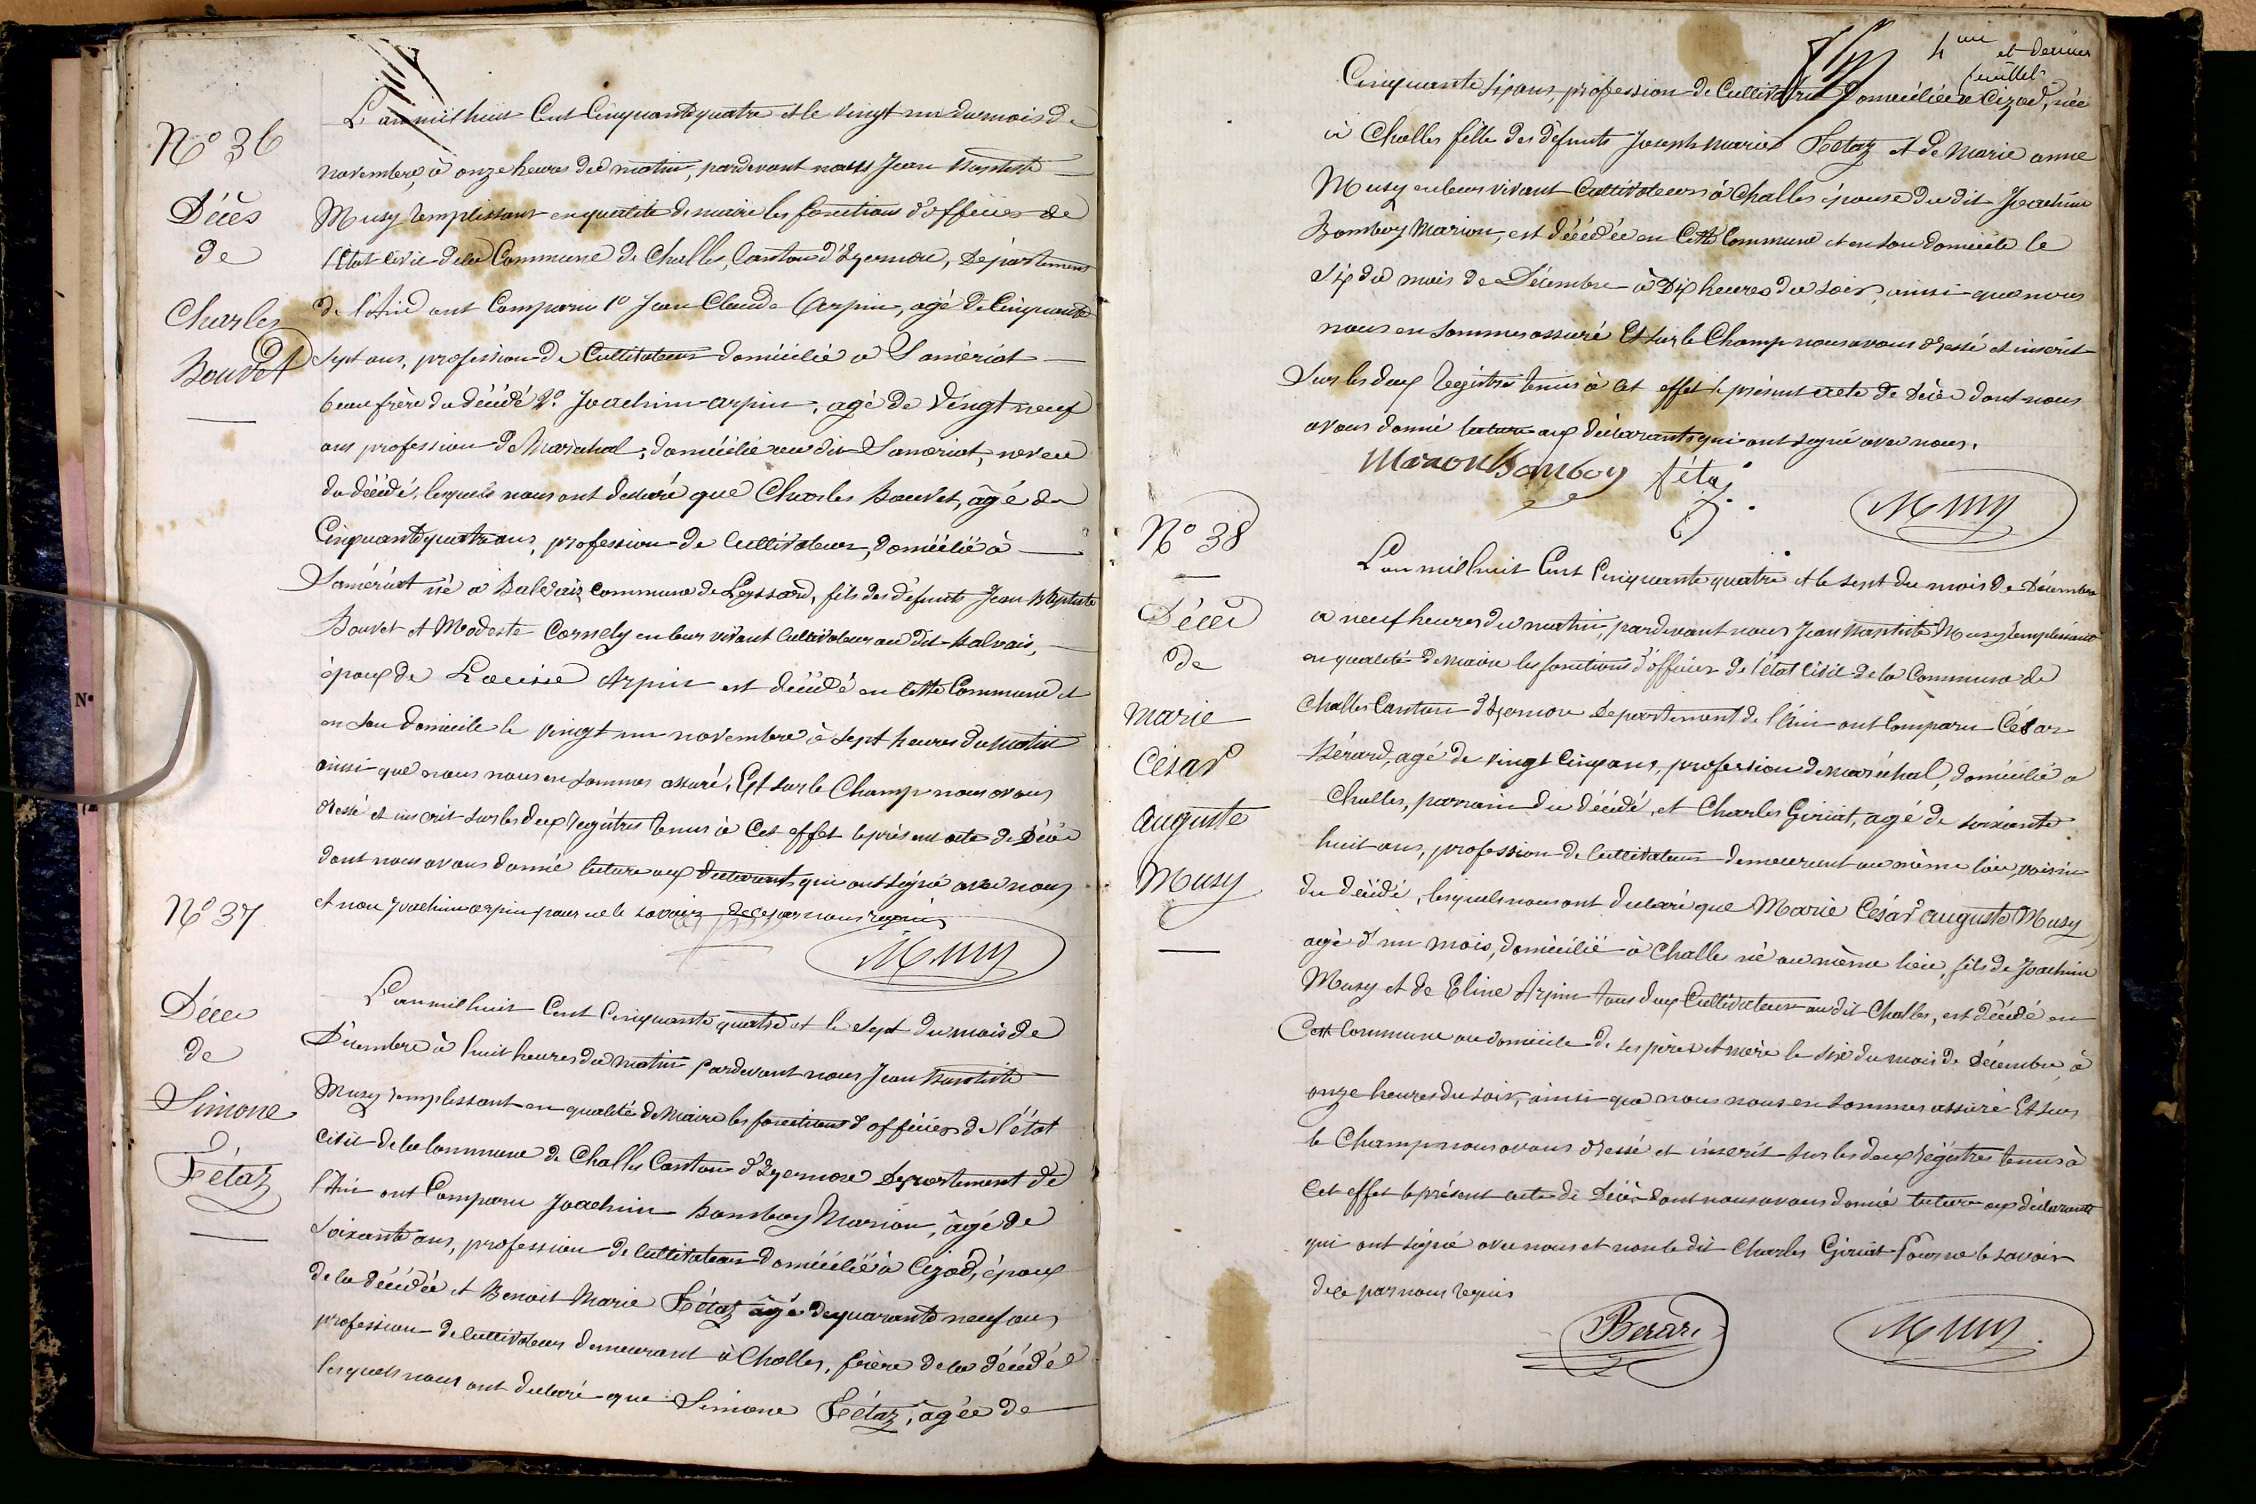 N° 36
Décès
de
Charles
Bouvet
L'an mil huit Cent Cinquante quatre et le vingt un du mois de
novembre, à onze heures du matin, pardevant nous Jean Baptiste
Musy remplissant en qualité de maire les fonctions d'officier de
l'état civil de la Commune de Challes, Canton d'Izernore, Département
de l'Ain ont Comparu 1° Jean Claude Arpin, agé de Cinquante
sept ans, profession de Cultivateur domicilié a Samériat
beau frère du décédé 2° Joachim arpin, agé de Vingt neuf
ans profession de Maréchal, domicilié au dit Samériat, neveu
du décédé, lesquels nous ont déclaré que Charles Bouvet, âgé de
Cinquante quatre ans, profession de Cultivateur, domicilié à
Samériat né a Balvais, commune de Leyssard, fils des défunts Jean Baptiste
Bouvet et Modeste Cornely en leur vivant Cultivateur au dit Balvais,
époux de Louise Arpin est décédé en Cette Commune et
en son domicile le vingt un novembre à sept heures du matin
ainsi que nous nous en sommes assuré, Et sur le Champ nous avons
dressé et inscrit sur les deux registres tenus à Cet effet le présent acte de Décès
dont nous avons donné lecture aux déclarants qui ont signé avec nous
et non Joachim arpin pour ne le savoir de ce par nous requis
Musy
N° 37
Décès
de
Simone
Fétaz
L'an mil huit Cent Cinquante quatre et le sept du mois de
Décembre à huit heures du matin pardevant nous Jean Baptiste
Musy remplissant en qualité de Maire les fonctions d'officier de l'état
civil de la Commune de Challes Canton d'Izernore Département de
l'Ain ont Comparu Joachim Bomboy Marion, âgé de
soixante ans, profession de Cultivateur domicilié à Cizod, époux
de la décédée et Benoit Marie Fétaz âgé de quarante neuf ans
profession de Cultivateur demeurant à Challes, frère de la décédée
lesquels nous ont déclaré que Simone Fétaz, âgée de
4me et dernier
feuillet
Cinquante six ans, profession de Cultivatrice Domiciliée a Cizod, née
à Challes fille des défunts Joseph marie Fetaz et de Marie anne
Musy en leurs vivant Cultivateurs à Challes épouse du dit Joachim
Bomboy Marion, est décédée en Cette Commune et en son domicile le
six du mois de Décembre à Dix heures du soir, ainsi que nous
nous en sommes assuré Et sur le Champ nous avons dressé et inscrit
sur les deux registres tenus à Cet effet le présent acte de Décès dont nous
avons donné lecture aux déclarants qui ont signé avec nous.
Marion Bomboy fétaz
Musy
N° 38
Décès
de
Marie
César
Auguste
Musy
L'an mil huit Cent Cinquante quatre et le sept du mois de Décembre
a neuf heures du matin, pardevant nous Jean Baptiste Musy remplissant
en qualité de Maire les fonctions d'officier de l'état Civil de la Commune de
Challes Canton d'Izernore Département de l'Ain ont Comparu César
Bérard, agé de vingt Cinq ans, profession de maréchal, domicilié a
Challes, parrain du décédé, et Charles Giriat, agé de soixante
huit ans, profession de Cultivateur demeurant au même lieu, voisin
du décédé, lesquels nous ont déclaré que Marie César auguste Musy
agé d'un mois, domicilié à Challe né au même lieu, fils de Joachim
Musy et de Eline Arpin tous deux Cultivateur au dit Challes, est décédé en
Cette Commune au domicile de ses père et mère le six du mois de Décembre, à
onze heures du soir, ainsi que nous nous en sommes assuré Et sur
le Champ nous avons dressé et inscrit sur les deux régistres tenus à
Cet effet le présent acte de Décès dont nous avons donné lecture aux déclarants
qui ont signé avec nous et non le dit Charles Giriat Pour ne le savoir
de ce par nous requis
Berard
Musy
N°